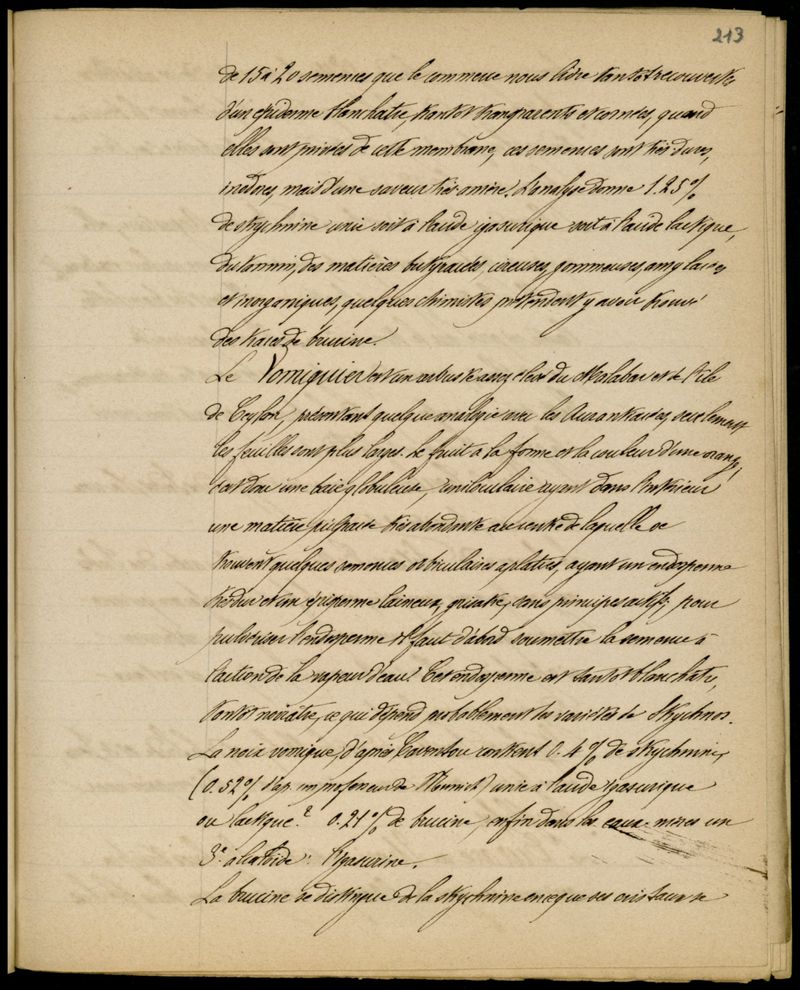 213
de 15 à 20 semences que le commerce nous livre tantôt recouvertes
d'un épiderme blanchatre, tantôt transparents et cornées, quand
elles sont privées de cette membrane, ces semences sont très dures,
inodores, mais d'une saveur très amère. L'analyse donne 1.25%
de strychnine unie soit à l'acide igasurique soit à l'acide lactique,
du tannin, des matières butyracées, cireuses, gommeuses, amylacées
et inorganiques, quelques chimistes prétendent y avoir trouvé
des traces de brucine.
Le Vomiquier est un arbuste assez élevé du Malabar et de l'île
de Ceylon, présentant quelque analogie avec les Aurantiacées, seulement
les feuilles sont plus larges. Le fruit a la forme et la couleur d'une orange,
c'est donc une baie globuleuse, uniloculaire ayant dans l'intérieur
une matière pulpeuse très abondante au centre de laquelle se
trouvent quelques semences orbiculaires aplaties, ayant un endosperme
très dur et un épisperme laineux, grisatre, sans principes actifs; pour
pulveriser l'endosperme il faut d'abord soumettre la semence à
l'action de la vapeur d'eau. Cet endosperme est tantôt blanchatre,
tantôt noirâtre, ce qui dépend probablement des variétés de Strychnos.
La noix vomique, d'après Caventou contient 0.4% de strychnine,
(0.52% d'ap. un professeur de Munich) unie à l'acide igasurique
ou lactique. 2° 0.21% de brucine, enfin dans les eaux-mères un
3e. alcaloïde: l'igasurine.
La brucine se distingue de la strychnine en ce que ses cristaux se